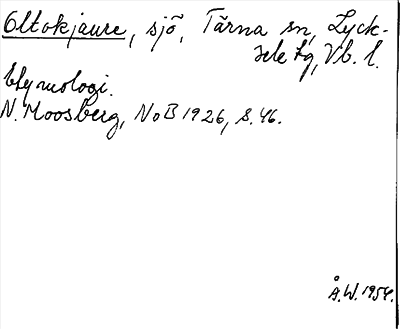 Oltokjaure, sjö, Tärna sn, Lyck-
sele lg, Vb. l.
Etymologi.
N. Moosberg, NoB 1926, s. 46.
Å.W. 1954.